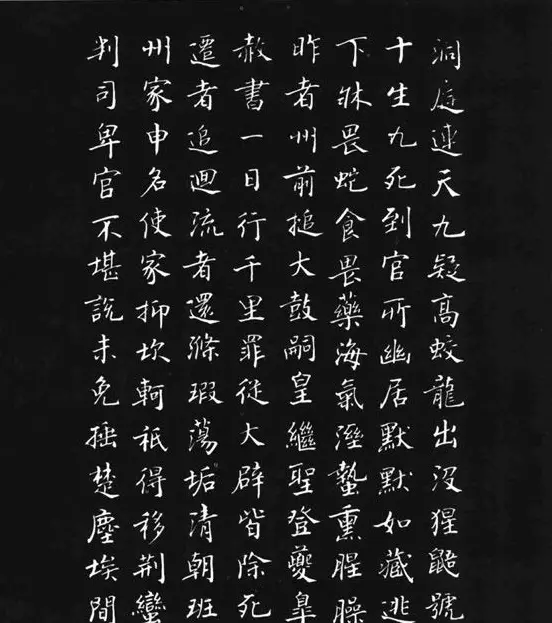 洞庭連天九疑高蛟龍出没猩鼯號
十生九死到官所幽居默默如藏逃
下牀畏蛇食畏藥海氣溼蟄熏腥臊
昨者州前搥大鼓嗣皇繼聖登夔皐
赦書一日行千里罪從大辟皆除死
遷者追迴流者還滌瑕蕩垢清朝班
州家申名使家抑坎軻祗得移荆蠻
判司卑官不堪說未免捶楚塵埃間